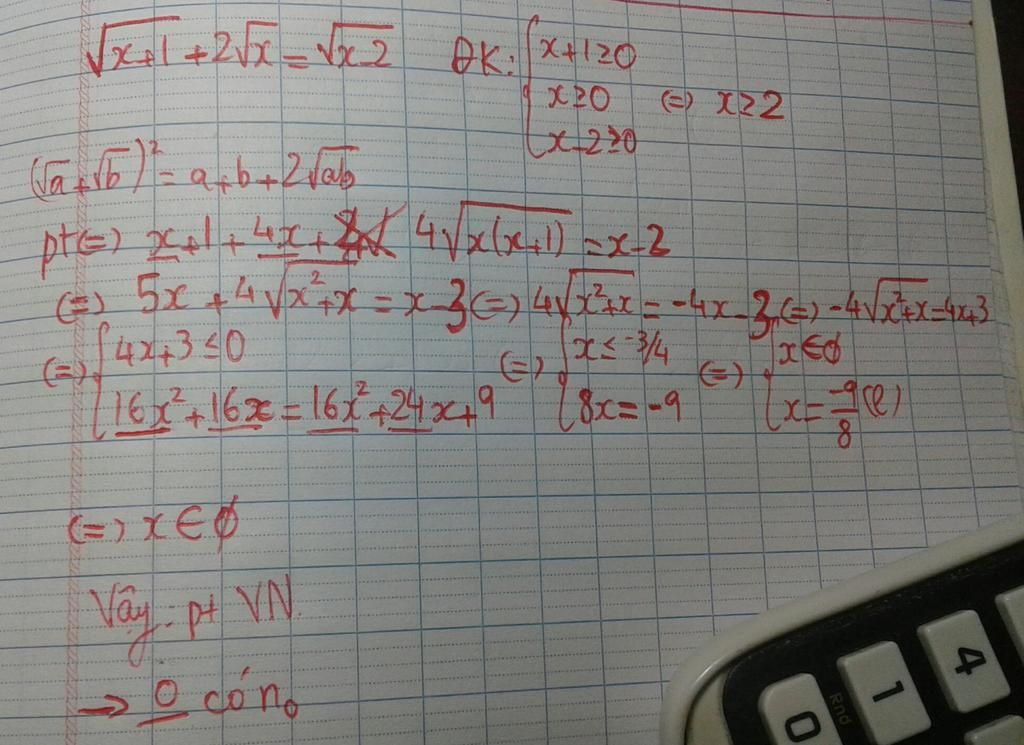 √x+1 + 2√x = √x-2 ĐK: { x+1≥0
x≥0 (=) x≥2
x-2≥0
(√a+√b)² = a+b+2√ab
pt(=) x+1+4x+ 4√x(x+1) = x-2
(=) 5x+4√x²+x = x-3 (=) 4√x²+x = -4x-3 (=) -4√x²+x=4x+3
(=) { 4x+3≤0 (=) { x≤-3/4 (=) { x∈ϕ
16x²+16x=16x²+24x+9 8x=-9 x=-9/8 (l)
(=) x∈ϕ
Vậy: pt VN.
→ 0 có n₀
4
1
Rnd
0